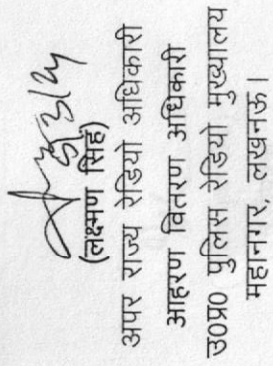 (लक्ष्मण सिंह)
अपर राज्य रेडियो अधिकारी
आहरण वितरण अधिकारी
उ0प्र0 पुलिस रेडियो मुख्यालय
महानगर, लखनऊ।